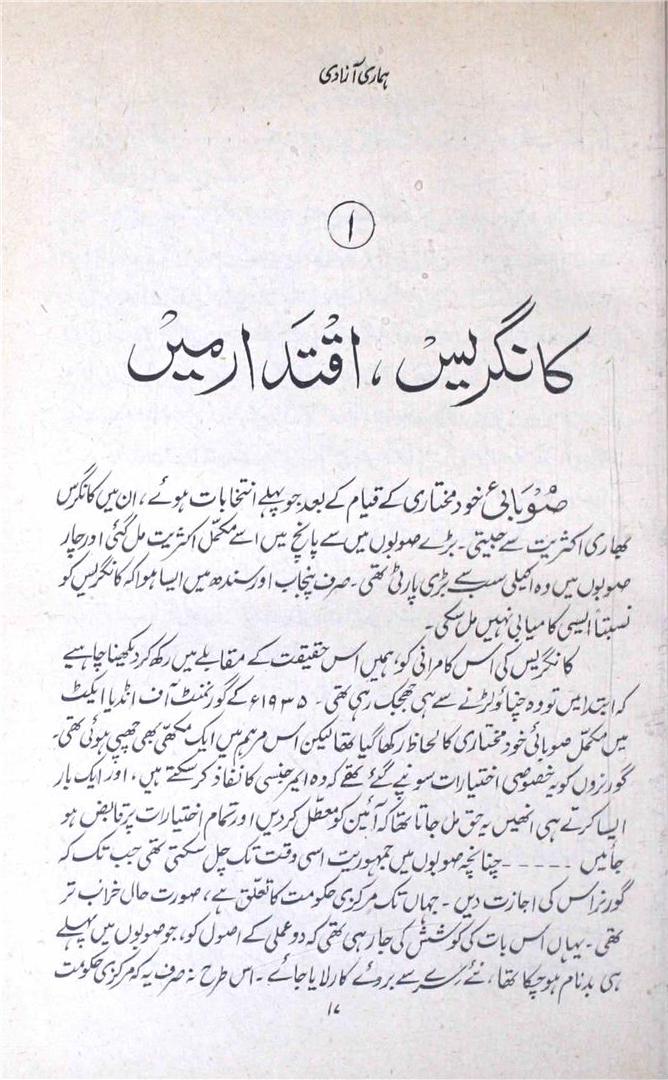 ہماری آزادی
۱
کانگریس، اقتدار میں
صوبائی خود مختاری کے قیام کے بعد جو پہلے انتخابات ہوئے، ان میں کانگرس
بھاری اکثریت سے جیتی۔ بڑے صوبوں میں سے پانچ میں اسے مکمل اکثریت مل گئی اور چار
صوبوں میں وہ اکیلی سب سے بڑی پارٹی تھی۔ صرف پنجاب اور سندھ میں ایسا ہوا کہ کانگریس کو
نسبتاً ایسی کامیابی نہیں مل سکی۔
کانگریس کی اس کامرانی کو ہمیں اس حقیقت کے مقابلے میں رکھ کر دیکھنا چاہیے
کہ ابتدا میں تو وہ چناؤ لڑنے سے ہی جھجک رہی تھی۔ ۱۹۳۵ء کے گورنمنٹ آف انڈیا ایکٹ
میں مکمل صوبائی خود مختاری کا لحاظ رکھا گیا تھا لیکن اس مرہم میں ایک مکھی بھی چھپی ہوئی تھی۔
گورنروں کو یہ خصوصی اختیارات سونپے گئے تھے کہ وہ ایمرجنسی کا نفاذ کر سکتے ہیں، اور ایک بار
ایسا کرتے ہی انھیں یہ حق مل جاتا تھا کہ آئین کو معطل کر دیں اور تمام اختیارات پر قابض ہو
جائیں ------ چنانچہ صوبوں میں جمہوریت اسی وقت تک چل سکتی تھی جب تک کہ
گورنر اس کی اجازت دیں۔ جہاں تک مرکزی حکومت کا تعلق ہے، صورت حال خراب تر
تھی۔ یہاں اس بات کی کوشش کی جا رہی تھی کہ دو عملی کے اصول کو، جو صوبوں میں پہلے
ہی بدنام ہو چکا تھا، نئے سرے سے بروئے کار لایا جائے۔ اس طرح نہ صرف یہ کہ مرکزی حکومت
۱۷